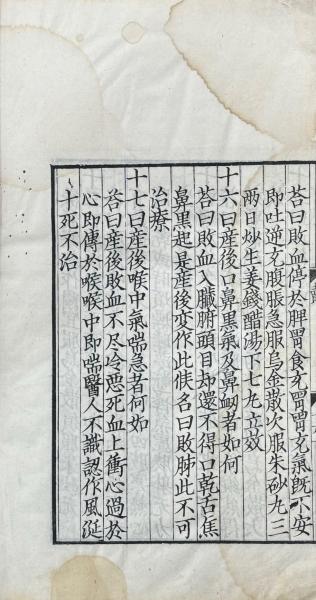 荅曰敗血停於脾胃食充胃胃玄氣旣不安
即吐逆玄腹脹急服烏金散次服朱砂丸三
兩日炒生姜錢醋湯下七丸立效
十六曰産後口鼻黒氣及鼻衂者如何
荅曰敗血入臓腑頭目却還不得口乾舌焦
鼻黒起是産後変作此候名曰敗肺此不可
治療
十七曰産後喉中氣喘急者如何
荅曰産後敗血不尽冷悪死血上衝心過於
心即傳於喉喉中即喘醫人不識認作風涎
十死不治